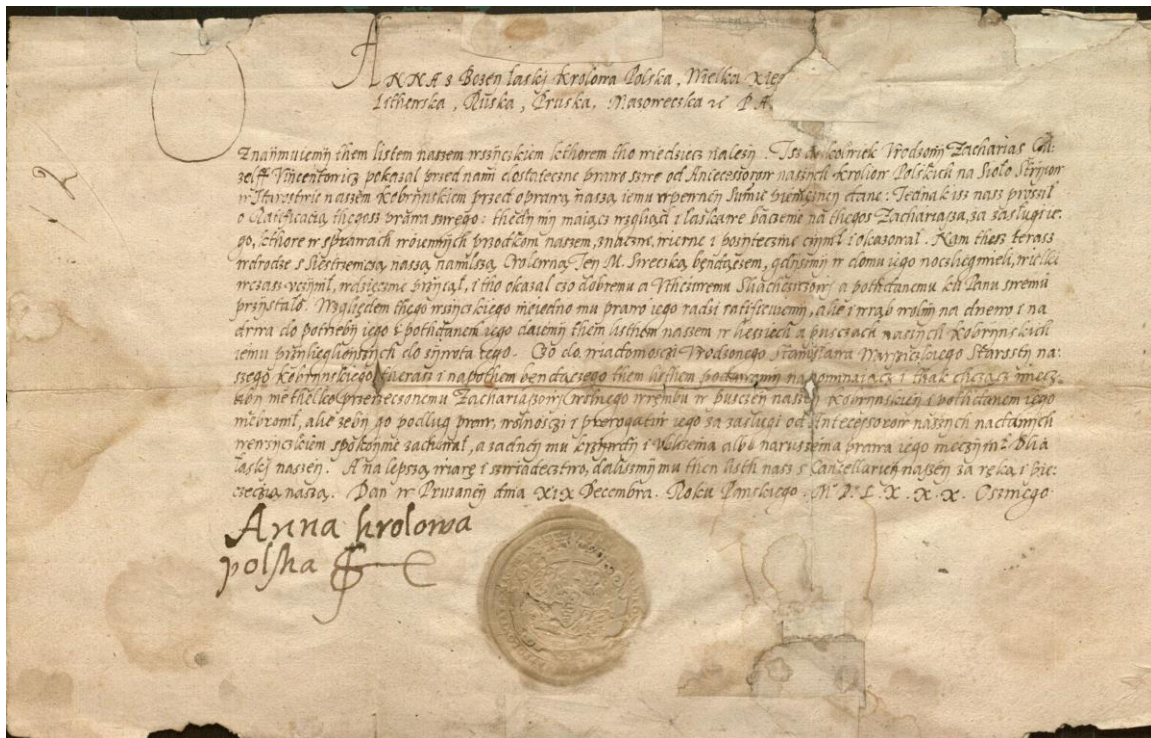 ANNA z Bozey laski Krolowa Polska, Wielka Xię
Lithewska, Ruska, Pruska, Mazoweczka etc PA
Znaijmuiemÿ them listem naszem wszÿczkiem kthorem tho wiedziecz nalezÿ. Isz aczkolwiek Vrodzonÿ Zacharias
Vincentowicz pokazal przed nami dostateczne prawo swe od Antecessorow naszÿch krolow Polskich na Sioło
w Starostwie naszem Kobrÿnskiem przed oprawą naszą iemu w pewneÿ Sumie pieniężneÿ dane: Jednak isz nasz prosził
o Ratifficacią thegosz prawa swego: thedÿ mÿ maiącz wzgląd i łaskawe baczenie na thegosz Zachariasza, za zasługi ie-
go, kthore w sprawach rosznÿch przodkom naszem, znaczne, wierne i pozÿteczne cinił i okazował. Nam thesz terasz
w drodze s Siestrzenczą naszą namilszą Crolewną Jeÿ M. Sweczką bendączem, gdÿszmÿ w domu iego noczlieg mieli, wielki
wczasz vczÿnił, wdzięcznie przÿiął, i tho okazal czo dobremu a Vthciwemu Slachcziczowi a poddanemu ku Panu swemu
przÿstało. Względem thego wszÿczkiego nie iedno mu prawo iego radzi ratifficuiemÿ, alie i wrąb wolnÿ na drzewo i na
drwa do potrzebÿ iego i poddanem iego daiemÿ them listem naszem w liesiech a pusczach naszÿch Kobrÿnskich
iemu przÿliegliejszÿch do zÿwota tego. Czo do wiadomosczi Vrodzonego Stanisława Starostÿ na-
szego Kobrÿnskiego, i napothem bendączego them listhem podawamÿ napominaiącz i thak chcącz miecz
abÿ nie thelko przerzeczonemu Zachariaszowi wolnego wrębu w pusczeÿ naszeÿ Kobrÿnskieÿ i poddanem iego
nie bronił, alie zebÿ go podlug praw, wolnosczi i prerogatiw iego za zasługi od Antecessorow naszÿch nadanÿch
we wszÿczkiem spokoÿnie zachował, a zadneÿ mu krziwdÿ i vbliżenia albo naruszenia prawa iego nie czÿnił dlia
łaski naszeÿ. A na lepszą wiarę i szwiadecztwo, daliszmÿ mu then listh nasz s Cancellarieÿ naszeÿ za ręką i pie-
częczią naszą. Dan w Pruzaneÿ dnia XIX Decembra. Roku Panskiego. M. D. L. X. X. X. Oszmego
Anna krolowa
polska